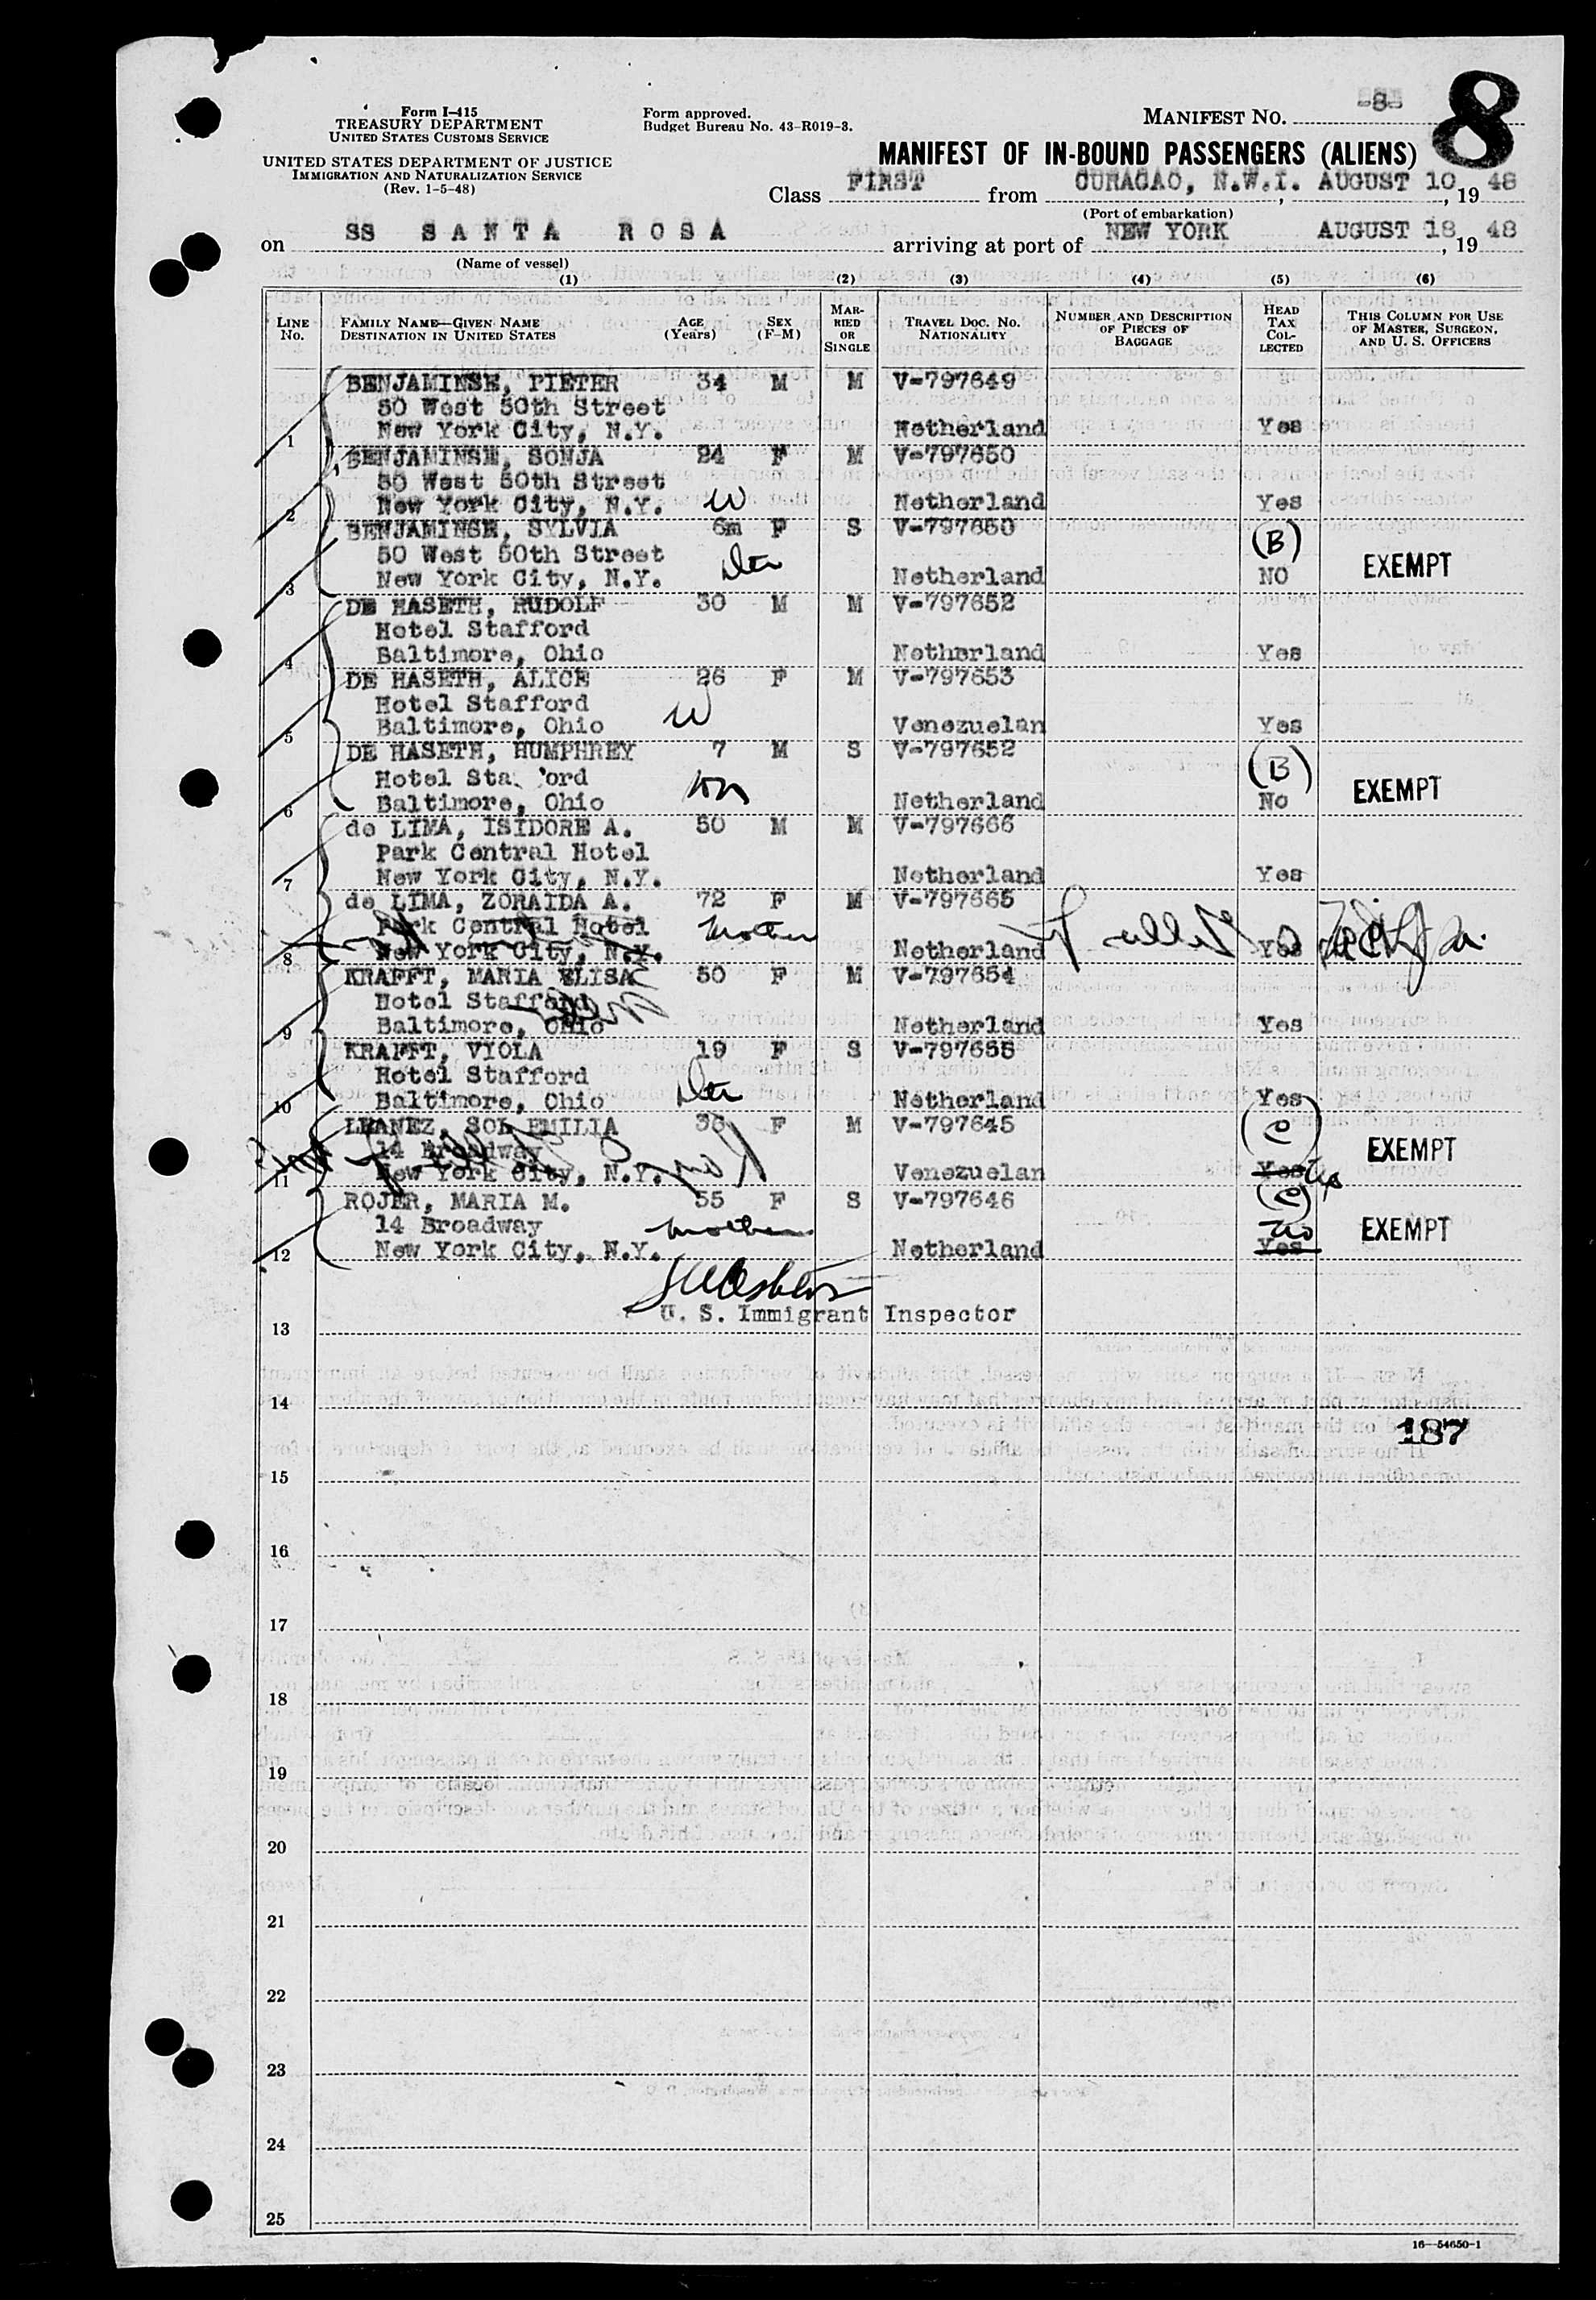 Form I-415
TREASURY DEPARTMENT
UNITED STATES CUSTOMS SERVICE
UNITED STATES DEPARTMENT OF JUSTICE
IMMIGRATION AND NATURALIZATION SERVICE
(Rev. 1-5-48)
Form approved.
Budget Bureau No. 43-R019-3.
MANIFEST NO. -8-
8
MANIFEST OF IN-BOUND PASSENGERS (ALIENS)
Class FIRST from CURACAO, N.W.I. AUGUST 10, 19 48
(Port of embarkation)
on SS SANTA ROSA arriving at port of NEW YORK AUGUST 18, 19 48
(Name of vessel)
(1) (2) (3) (4) (5) (6)
LINE No. FAMILY NAME—GIVEN NAME DESTINATION IN UNITED STATES AGE (Years) SEX (F-M) MARRIED OR SINGLE TRAVEL DOC. NO. NATIONALITY NUMBER AND DESCRIPTION OF PIECES OF BAGGAGE HEAD TAX COLLECTED THIS COLUMN FOR USE OF MASTER, SURGEON, AND U. S. OFFICERS
BENJAMINSE, PIETER 34 M M V-797649
50 West 50th Street
1 New York City, N.Y. Netherland Yes
BENJAMINSE, SONJA 24 F M V-797650
50 West 50th Street
2 New York City, N.Y. W Netherland Yes
BENJAMINSE, SYLVIA 6m F S V-797650 (B)
50 West 50th Street Dtr EXEMPT
3 New York City, N.Y. Netherland NO
DE HASETH, RUDOLF 30 M M V-797652
Hotel Stafford
4 Baltimore, Ohio Netherland Yes
DE HASETH, ALICE 26 F M V-797653
Hotel Stafford W
5 Baltimore, Ohio Venezuelan Yes
DE HASETH, HUMPHREY 7 M S V-797652 (B)
Hotel Sta ord son EXEMPT
6 Baltimore, Ohio Netherland No
de LIMA, ISIDORE A. 50 M M V-797666
Park Central Hotel
7 New York City, N.Y. Netherland Yes
de LIMA, ZORAIDA A. 72 F M V-797665
Park Central Hotel mother
8 New York City, N.Y. Netherland Yes
KRAFFT, MARIA ELISA 50 F M V-797654
Hotel Stafford
9 Baltimore, Ohio Netherland Yes
KRAFFT, VIOLA 19 F S V-797655
Hotel Stafford Dtr
10 Baltimore, Ohio Netherland Yes
LEANEZ, SOL EMILIA 36 F M V-797645 (C)
14 Broadway EXEMPT
11 New York City, N.Y. Venezuelan Yes
ROJER, MARIA M. 55 F S V-797646 (C)
14 Broadway mother no EXEMPT
12 New York City, N.Y. Netherland Yes
U. S. Immigrant Inspector
13
14
187
15
16
17
18
19
20
21
22
23
24
25
16—54650-1